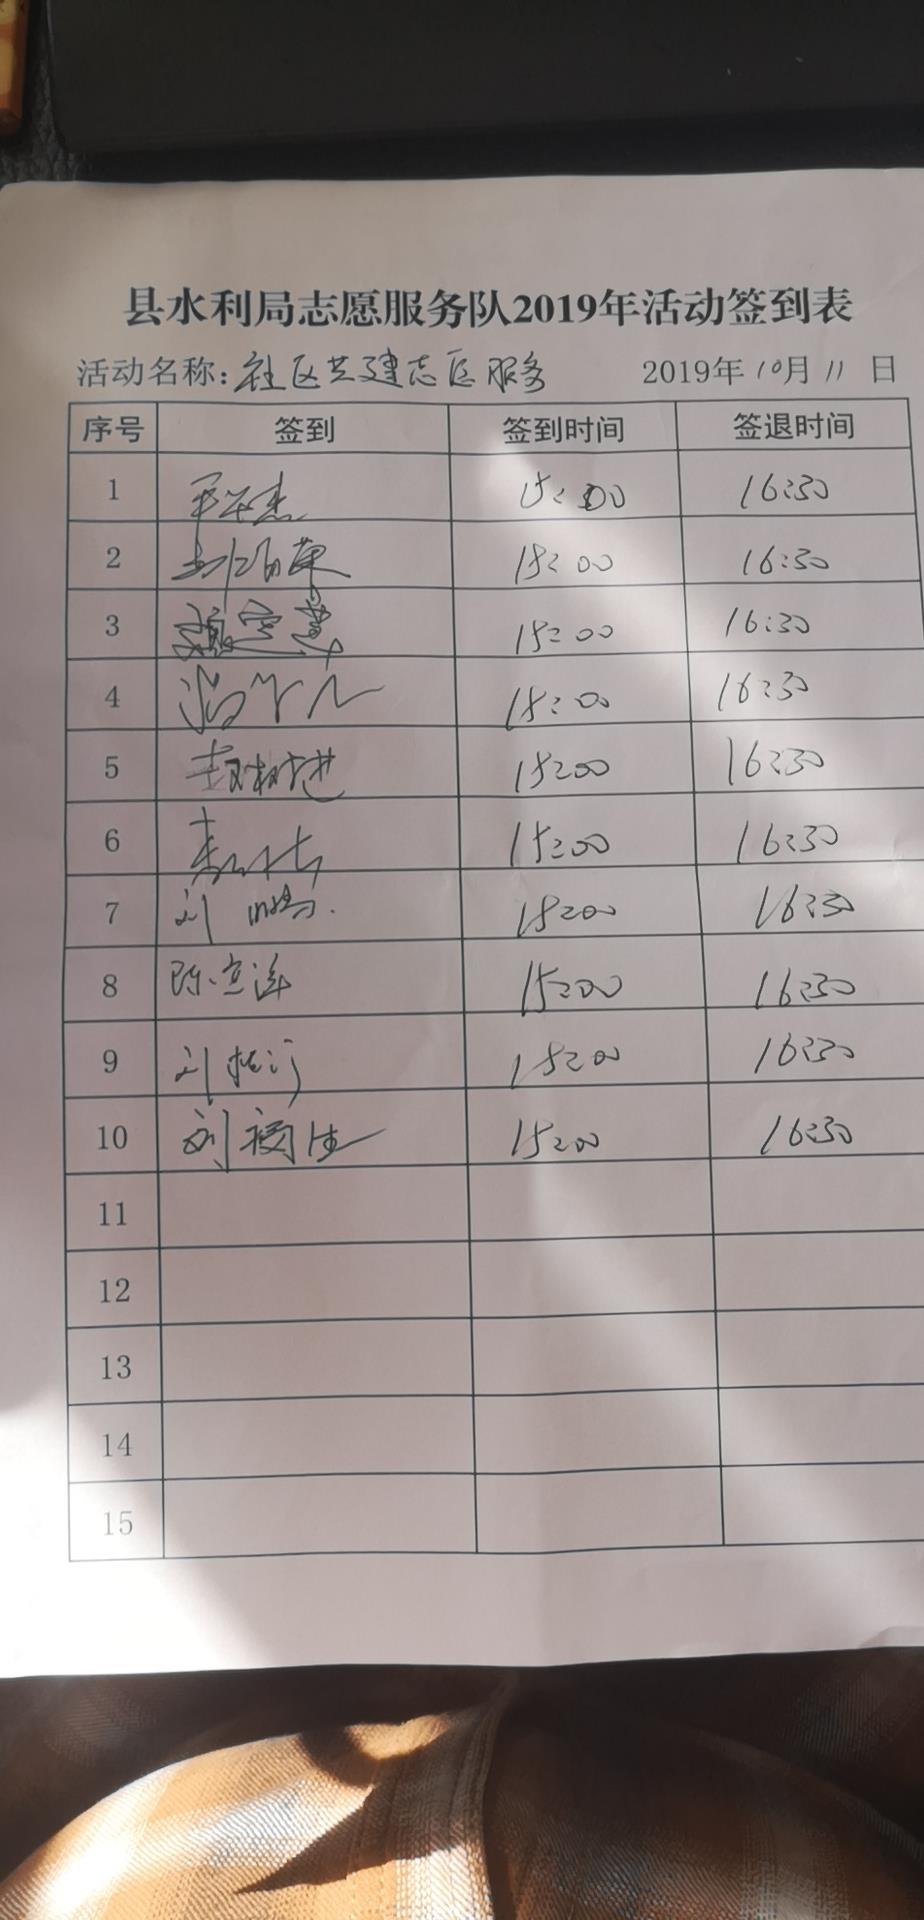 县水利局志愿服务队2019年活动签到表
活动名称：社区共建志愿服务 2019年10月11日
序号 签到 签到时间 签退时间
1 15:00 16:30
2 15:00 16:30
3 15:00 16:30
4 15:00 16:30
5 15:00 16:30
6 15:00 16:30
7 刘鹏 15:00 16:30
8 陈 15:00 16:30
9 刘 15:00 16:30
10 刘 15:00 16:30
11
12
13
14
15